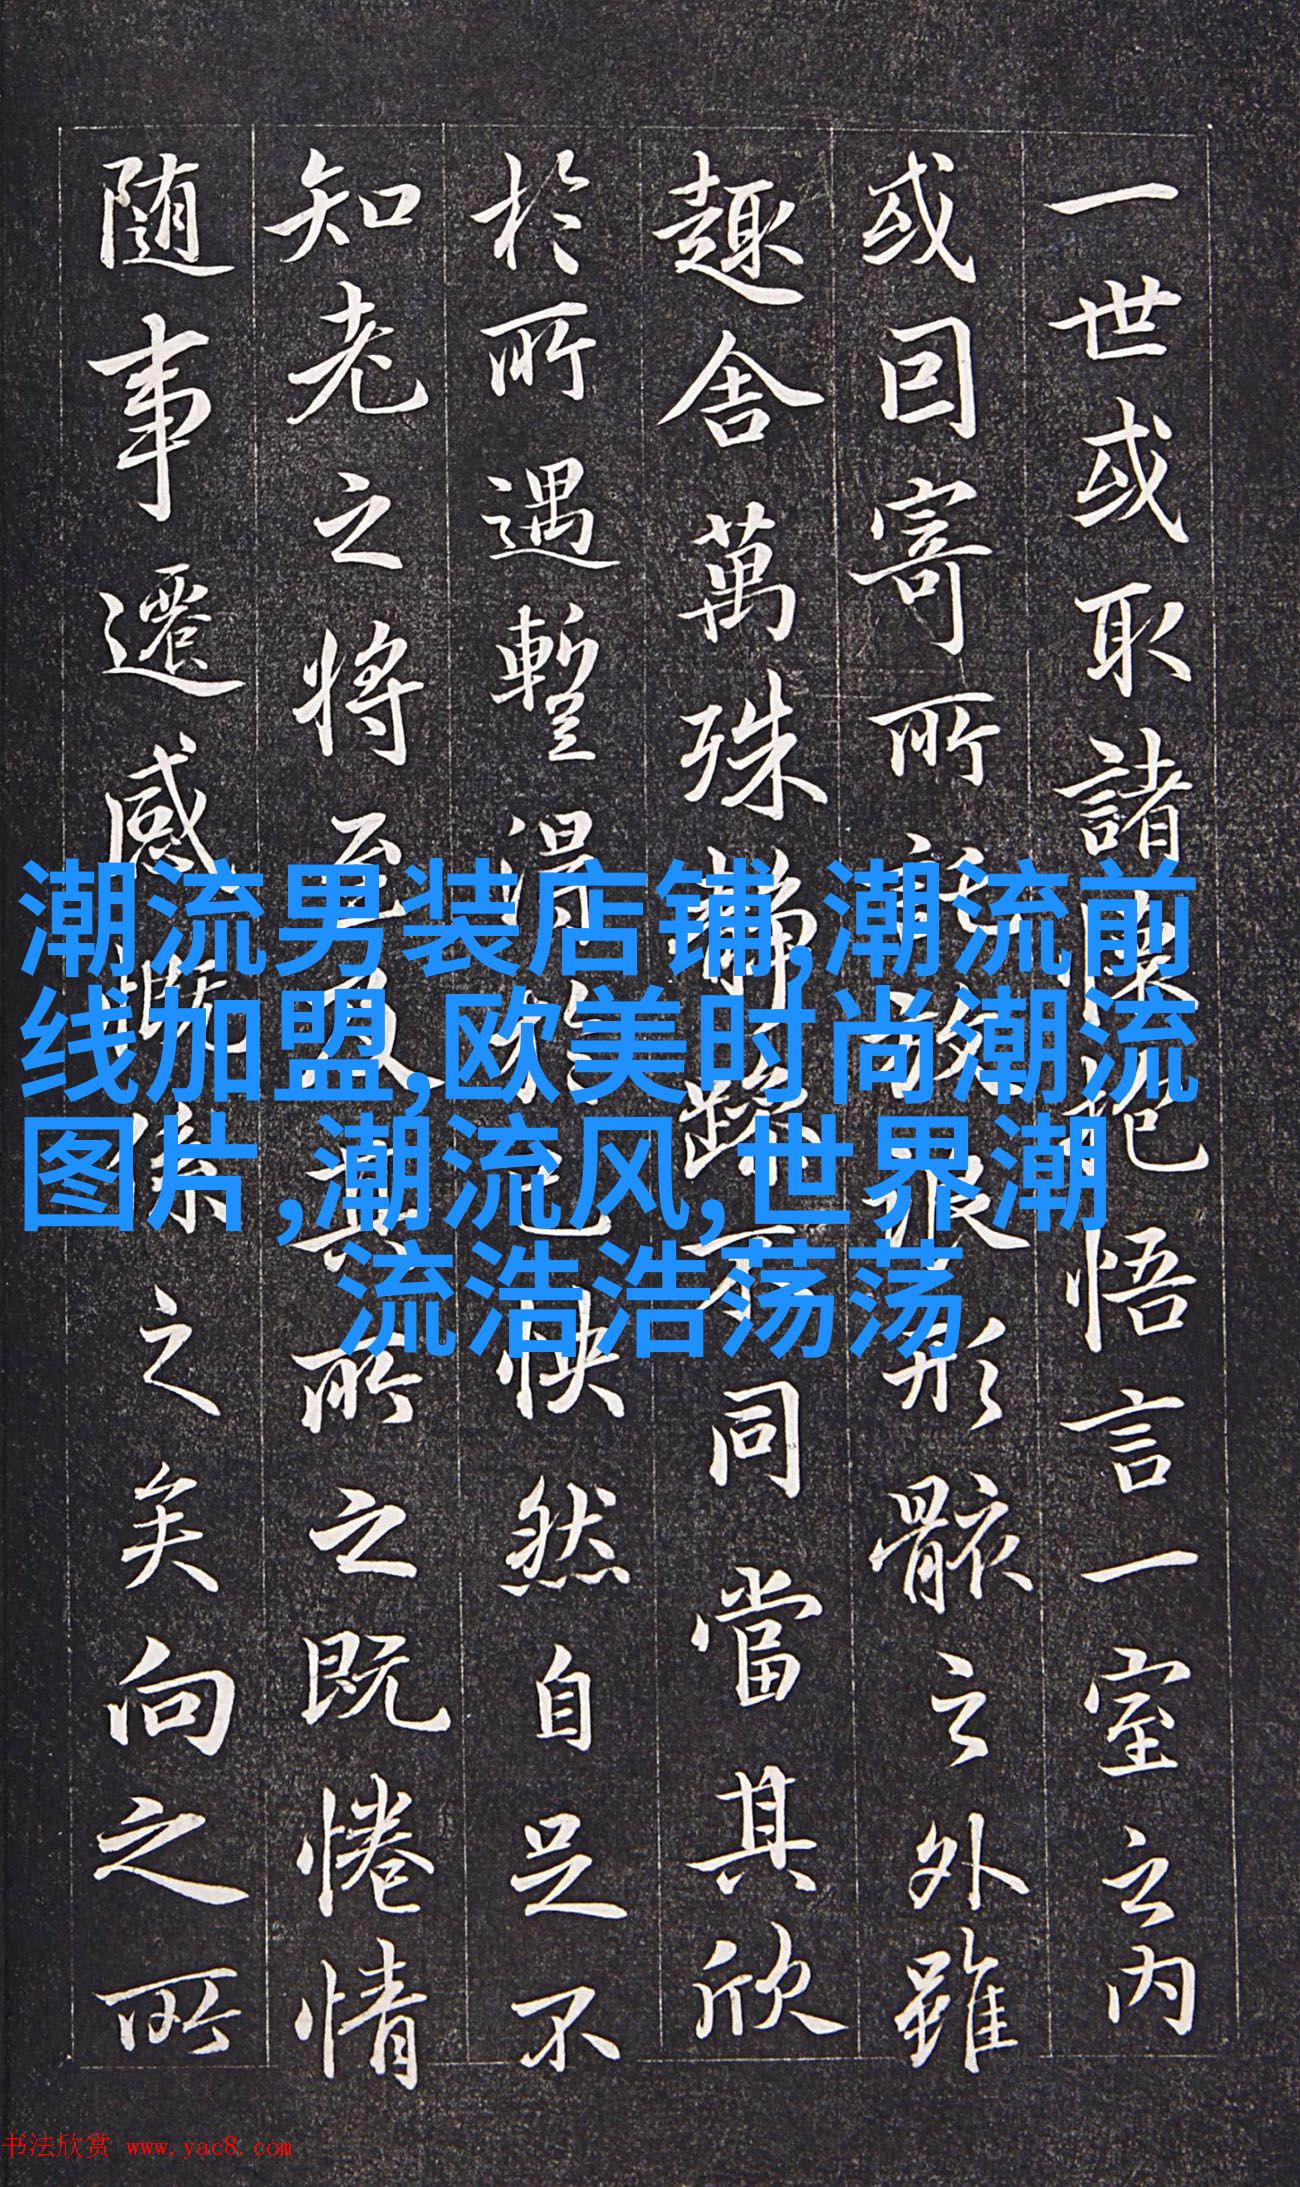 一世或取諸懷抱悟言一室之内
或囙寄所託放浪形骸之外雖
趣舍萬殊靜躁不同當其欣
於所遇蹔得於己快然自足不
知老之將至及其所之既惓情
随事遷感慨係之矣向之所
潮流男装店铺,潮流前
线加盟,欧美时尚潮流
图片,潮流风,世界潮
流浩浩荡荡
书法欣赏 www.yac8.com